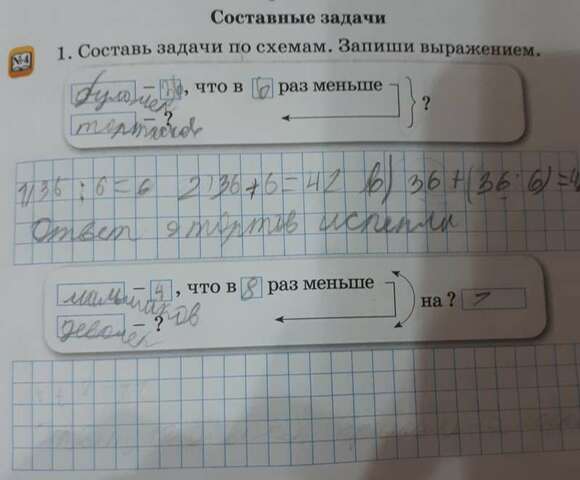 Составные задачи
№4
1. Составь задачи по схемам. Запиши выражением.
булочек – 36, что в 6 раз меньше
тортиков – ?
?
1) 36 : 6 = 6 2) 36 + 6 = 42 в) 36 + (36 : 6) = 4
Ответ тортов испекли
мальчиков – 4, что в 8 раз меньше
девочек – ?
на ?